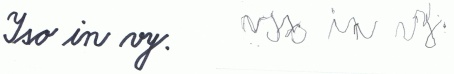 Iso in vy. vyso in vy.